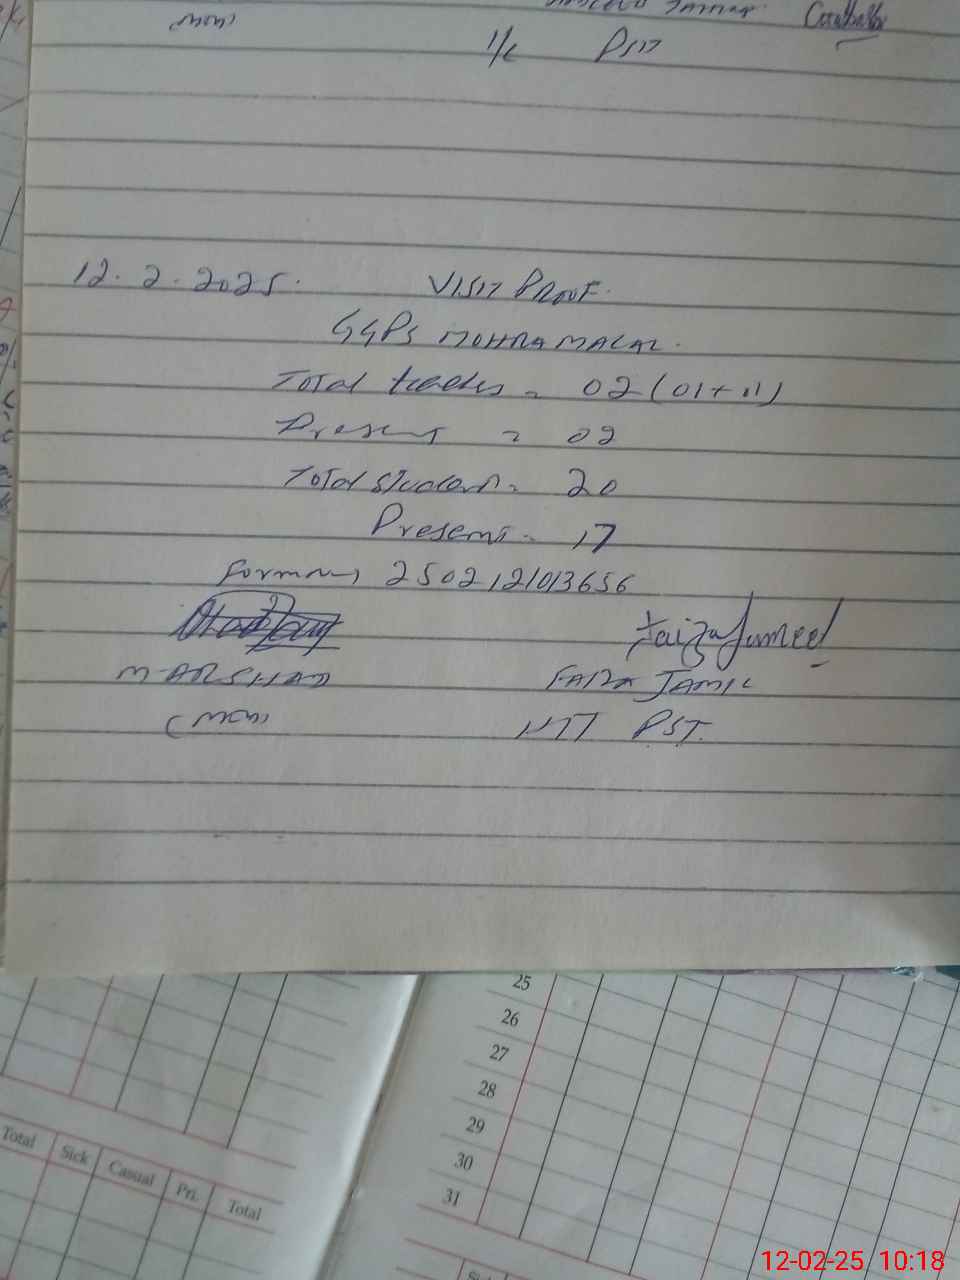 (MCM)
I/C PST
12.2.2025. VISIT PROOF.
GGPS MOHRA MALAL.
Total teaches = 02 (01+11)
Present = 02
Total student = 20
Present = 17
Form no 2502121013656
Faiza Jameel
M ARSHAD FAIZA JAMIL
(MCM) HTT PST.
25
26
27
28
29
30
31
Total Sick Casual Pri. Total
12-02-25 10:18